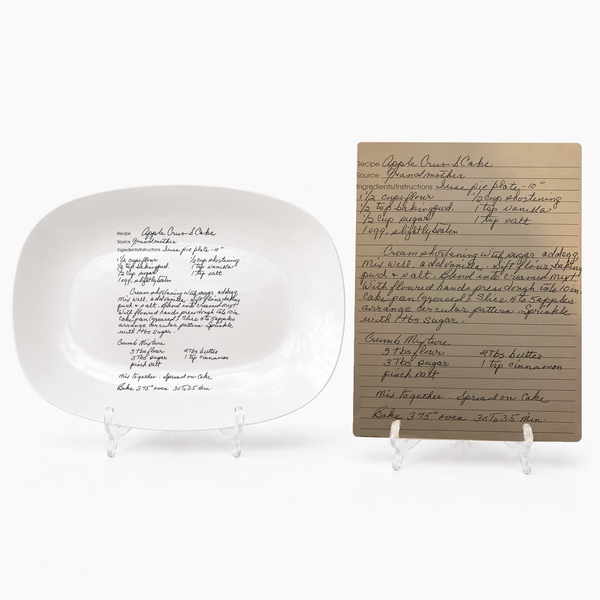 Recipe Apple Crumb Cake
Source Grandmother
Ingredients/Instructions I use pie plate - 10"
1 1/2 cups flour 1/2 cup shortening
1/2 tsp baking pwd. 1 tsp vanilla
1/2 cup sugar 1 tsp salt
1 egg, slightly beaten
Cream shortening with sugar, add egg.
Mix well, add vanilla. Sift flour, baking
pwd & salt. Blend into creamed mixt.
With floured hands press dough into 10 in.
cake pan (greased). Slice 4 to 5 apples
arrange circular pattern. Sprinkle
with 1 Tbs sugar.
Crumb Mixture
3 Tbs flour 2 Tbs butter
3 Tbs sugar 1 tsp cinnamon
pinch salt
Mix together. Spread on Cake
Bake 375° oven 30 To 35 min.
Recipe Apple Crumb Cake
Source Grandmother
Ingredients/Instructions I use pie plate - 10"
1 1/2 cups flour 1/2 cup shortening
1/2 tsp baking pwd. 1 tsp vanilla
1/2 cup sugar 1 tsp salt
1 egg, slightly beaten
Cream shortening with sugar, add egg.
Mix well, add vanilla. Sift flour, baking
pwd & salt. Blend into creamed mixt.
With floured hands press dough into 10 in.
cake pan (greased). Slice 4 to 5 apples
arrange circular pattern. Sprinkle
with 1 Tbs sugar.
Crumb Mixture
3 Tbs flour 2 Tbs butter
3 Tbs sugar 1 tsp cinnamon
pinch salt
Mix together. Spread on Cake
Bake 375° oven 30 To 35 min.